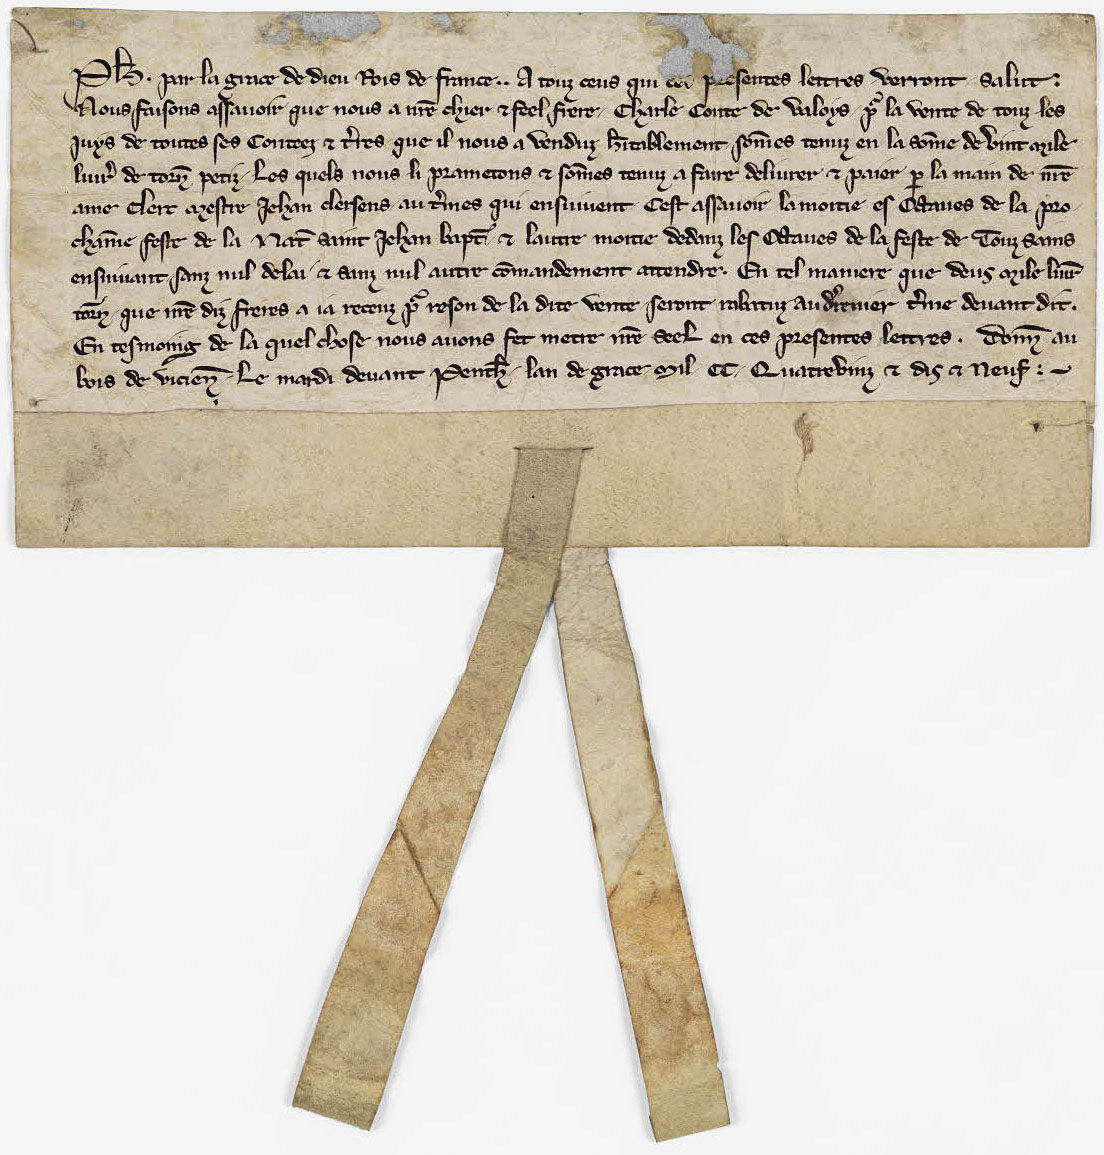 Ph. par la grace de dieu Rois de france.. A touz ceus qui ces presentes lettres verront salut:
Nous faisons assavoir que nous a nr̄e chier & feel frere Charle Conte de Valoys pͬ la vente de touz les
juys de toutes ses Conteez & t̄res que il nous a venduz h̄itablement som̄es tenuz en la som̄e de vint mile
livr̄ de torn̄ petiz. Les quels nous li prametons & som̄es tenuz a faire delivrer & paier ꝑ la main de nr̄e
ame clerc Mestre Jehan clersens au t̄mes qui ensuivent Cest assavoir la moitie es Octaves de la pro
chain̄e feste de la Nat̄ saint Jehan bapt̄ & lautre moitie dedanz les Octaves de la feste de Touz sains
ensuivant sanz nul delai & sanz nul autre com̄andement attendre. En tel maniere que deus mile livr̄
torn̄ que nr̄e diz freres a ia receuz pͬ reson de la dite vente seront rabatuz au derrenier t̄me devant dit.
En tesmoing de la quel chose nous avons fet metre nr̄e seel en ces presentes lettres. Donn̄ au
bois de vicien̄. Le mardi devant Penth̄. lan de grace Mil CC. Quatrevinz & dis & Neuf: